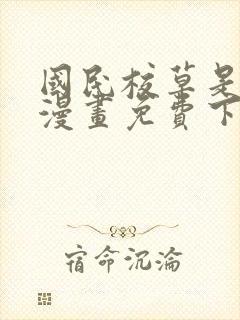 國民校草是
漫畫免費下
宿命沉淪